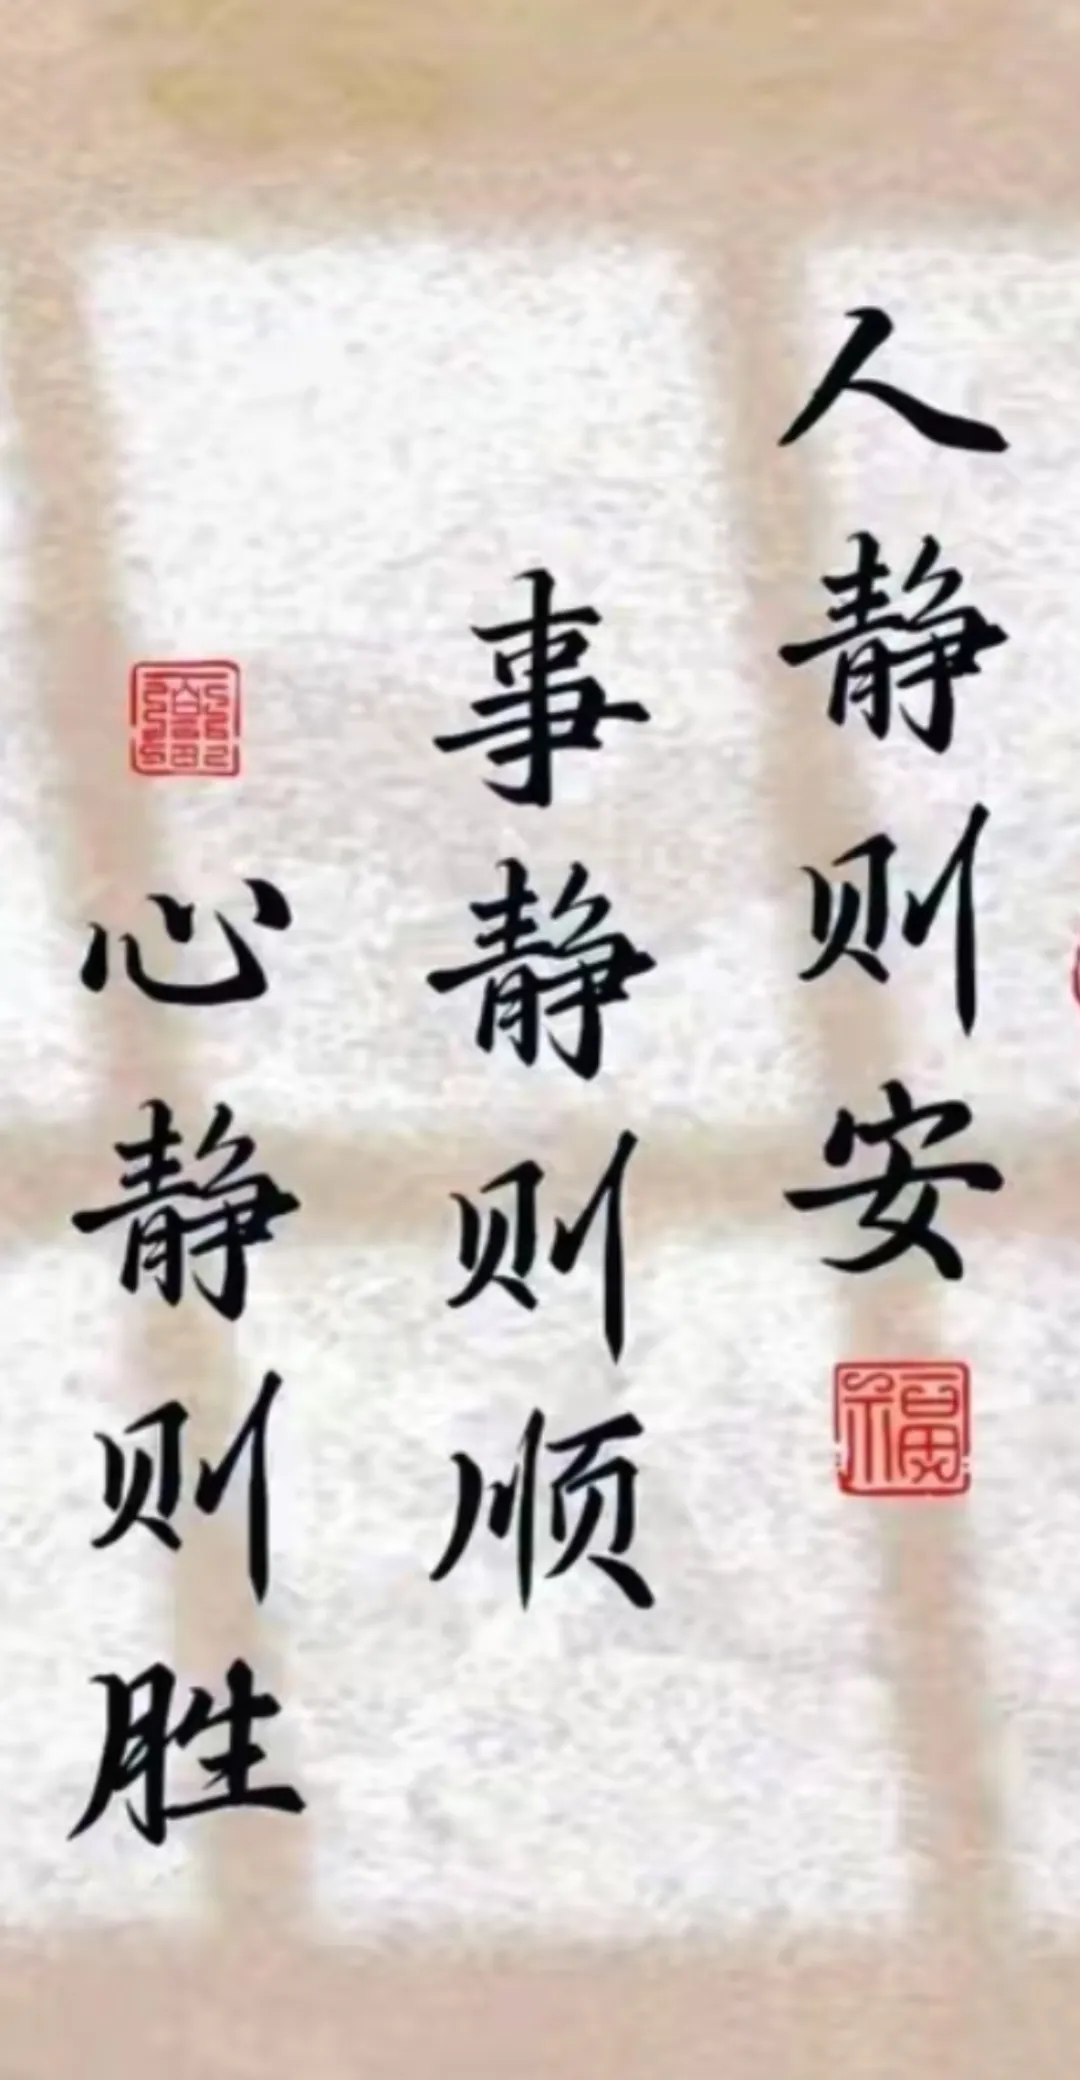 人静则安
福
事静则顺
心静则胜